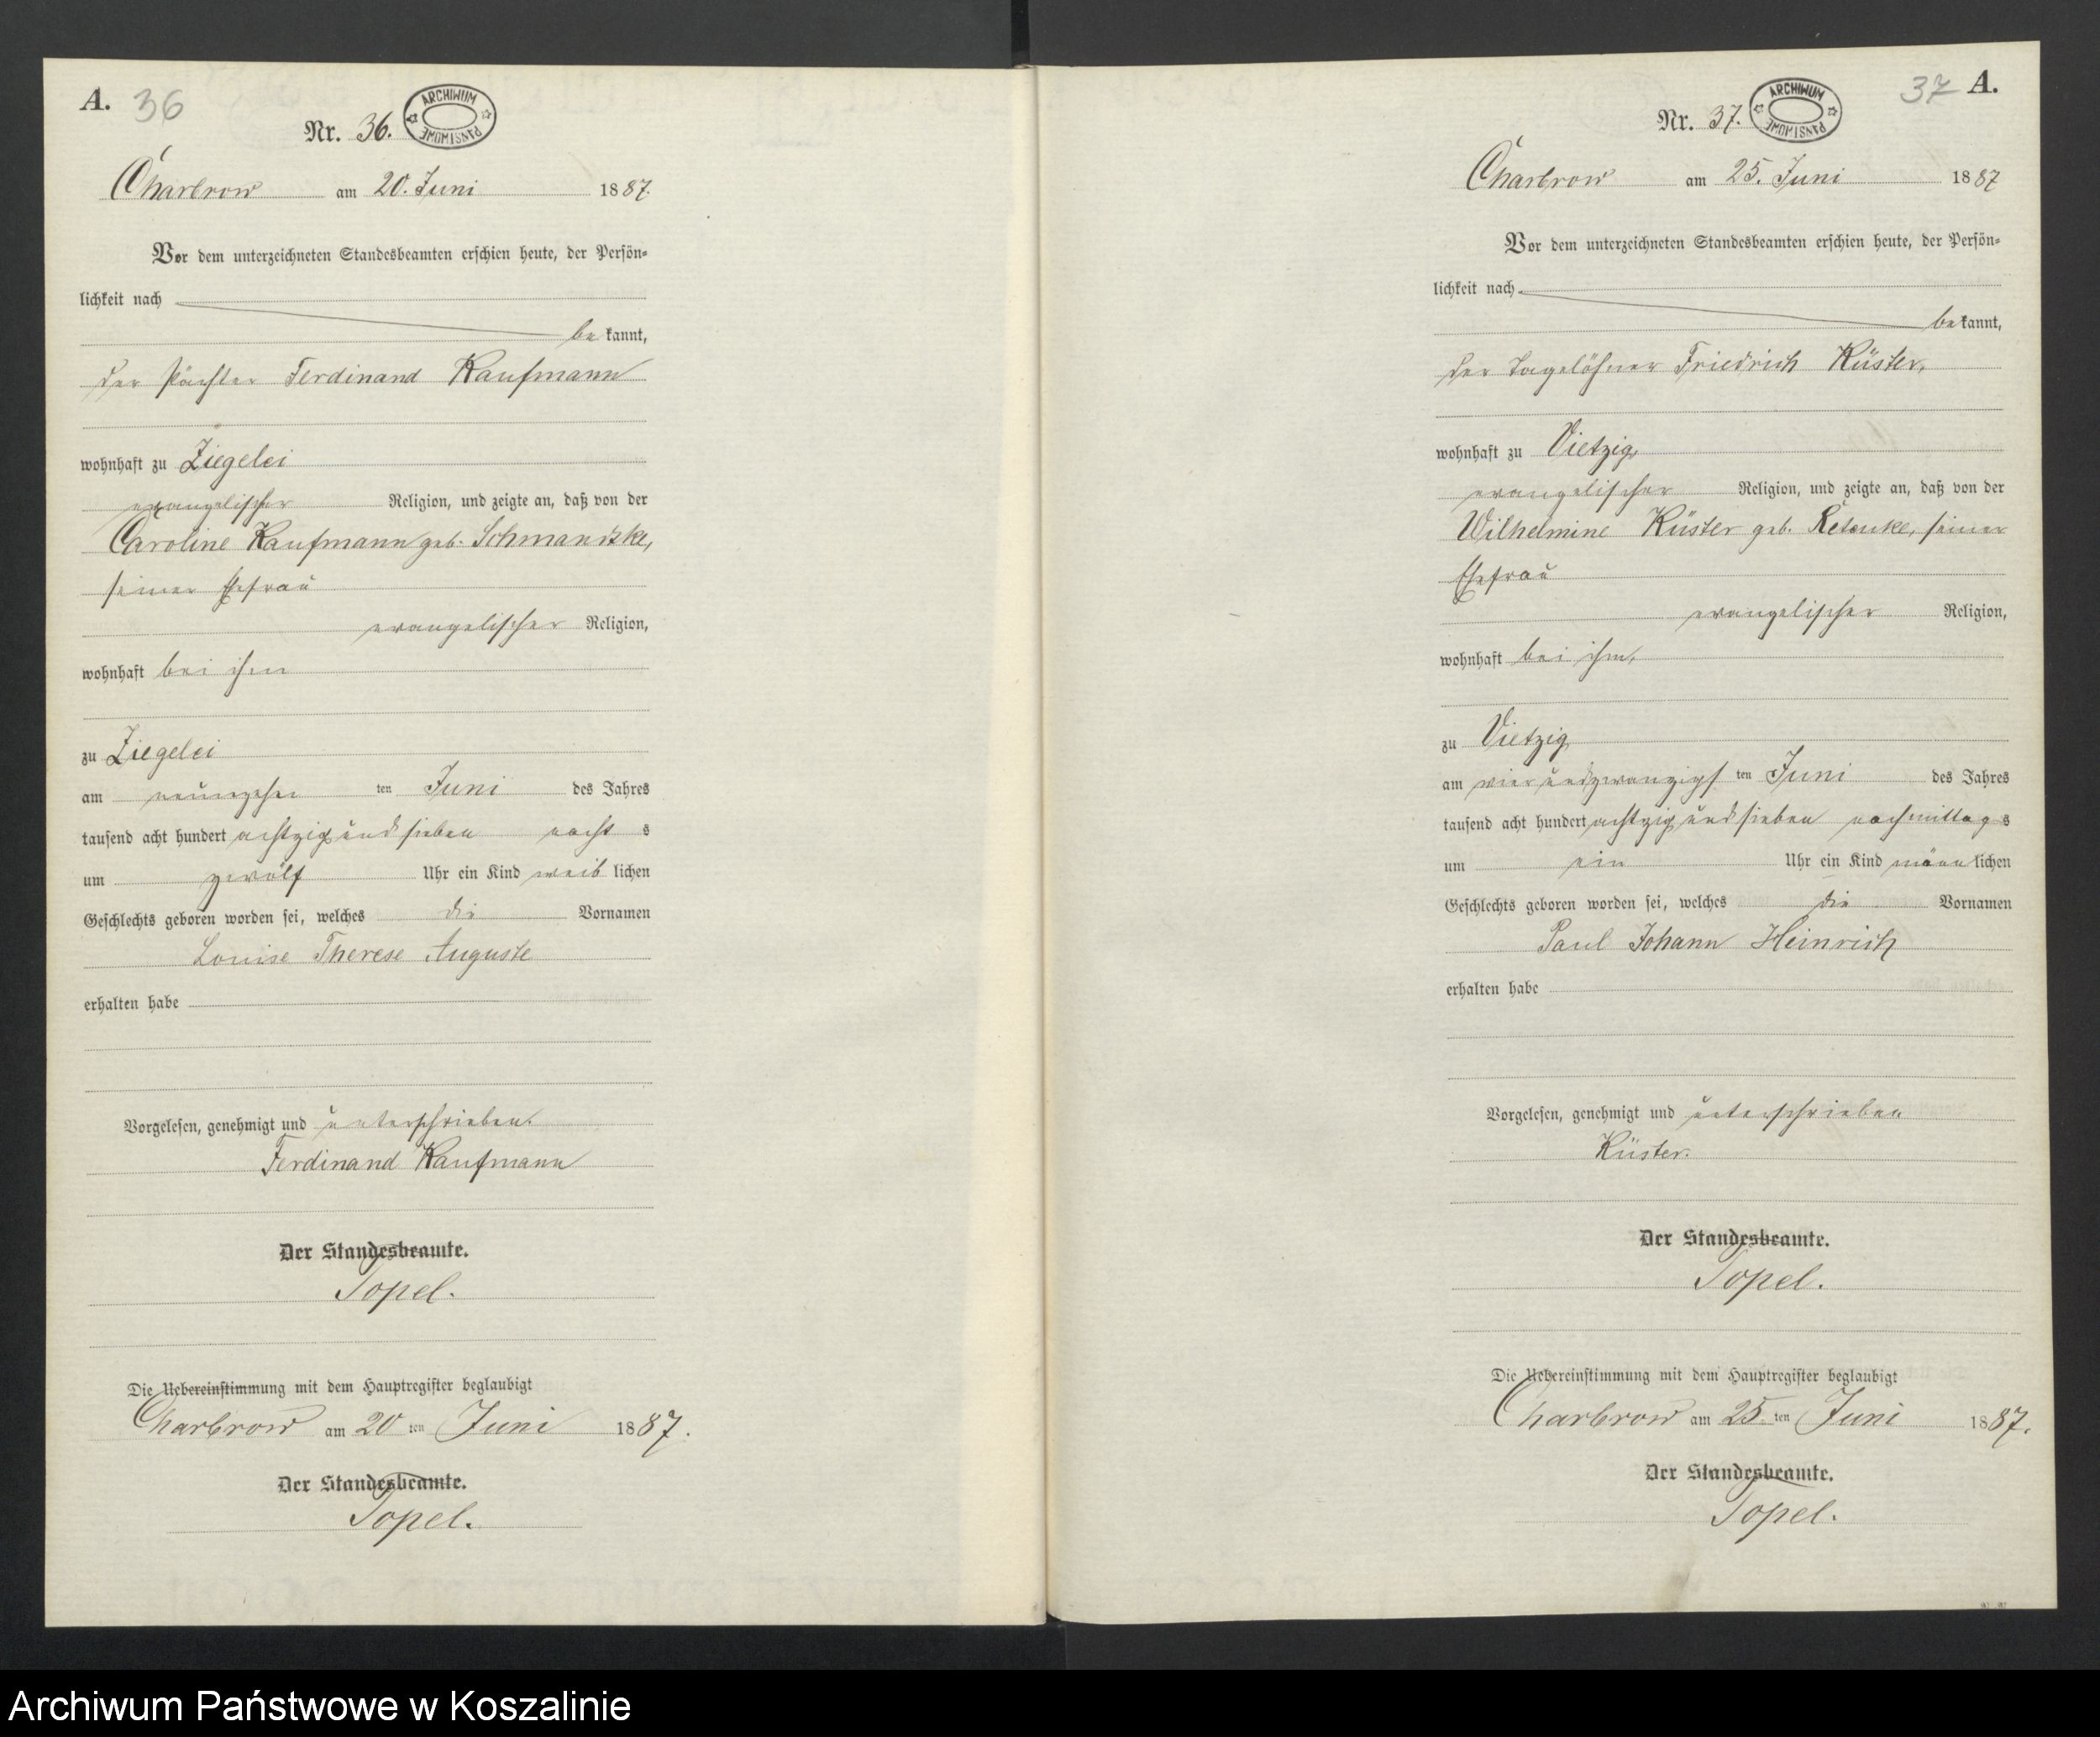 A. 36
Nr. 36.
ARCHIWUM PAŃSTWOWE
Charbrow am 20. Juni 1887.
Vor dem unterzeichneten Standesbeamten erschien heute, der Persön-
lichkeit nach
bekannt,
der Pächter Ferdinand Kaufmann
wohnhaft zu Ziegelei
evangelischer Religion, und zeigte an, daß von der
Caroline Kaufmann geb. Schmandzke,
seiner Ehefrau
evangelischer Religion,
wohnhaft bei ihm
zu Ziegelei
am neunzehn ten Juni des Jahres
tausend acht hundert achtzig und sieben nachts
um zwölf Uhr ein Kind weiblichen
Geschlechts geboren worden sei, welches die Vornamen
Louise Therese Auguste
erhalten habe
Vorgelesen, genehmigt und unterschrieben.
Ferdinand Kaufmann
Der Standesbeamte.
Topel.
Die Uebereinstimmung mit dem Hauptregister beglaubigt
Charbrow am 20 ten Juni 1887.
Der Standesbeamte.
Topel.
37 A.
Nr. 37.
ARCHIWUM PAŃSTWOWE
Charbrow am 25. Juni 1887
Vor dem unterzeichneten Standesbeamten erschien heute, der Persön-
lichkeit nach
bekannt,
der Tagelöhner Friedrich Küster,
wohnhaft zu Vietzig,
evangelischer Religion, und zeigte an, daß von der
Wilhelmine Küster geb. Retenke, seiner
Ehefrau
evangelischer Religion,
wohnhaft bei ihm,
zu Vietzig
am vierundzwanzigst ten Juni des Jahres
tausend acht hundert achtzig und sieben nachmittags
um ein Uhr ein Kind männlichen
Geschlechts geboren worden sei, welches die Vornamen
Paul Johann Heinrich
erhalten habe
Vorgelesen, genehmigt und unterschrieben
Küster.
Der Standesbeamte.
Topel.
Die Uebereinstimmung mit dem Hauptregister beglaubigt
Charbrow am 25. ten Juni 1887.
Der Standesbeamte.
Topel.
Archiwum Państwowe w Koszalinie